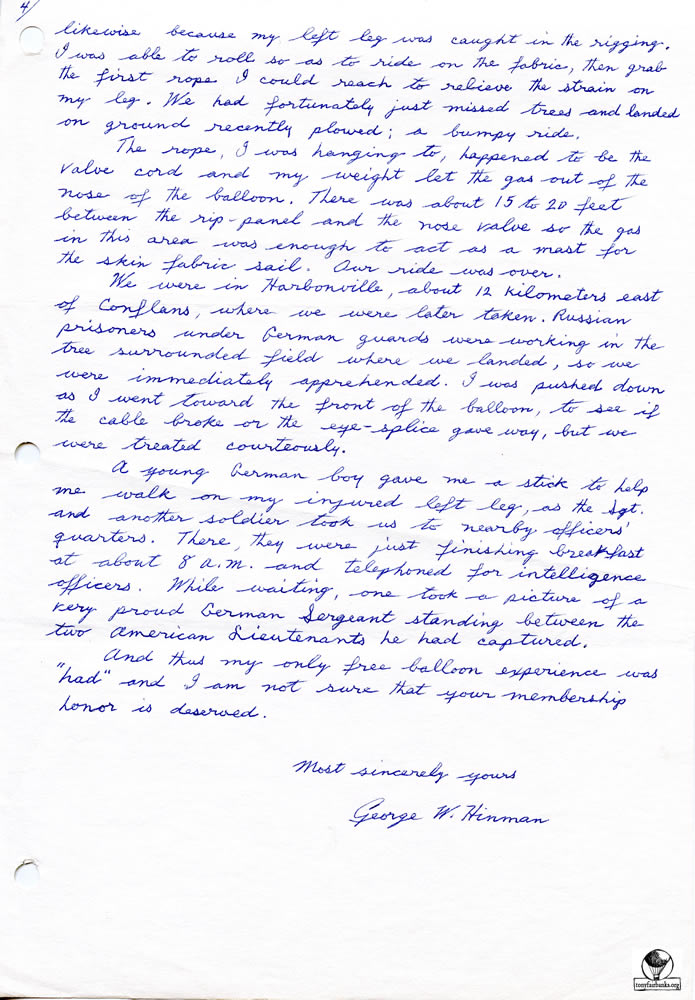 4/
likewise because my left leg was caught in the rigging.
I was able to roll so as to ride on the fabric, then grab
the first rope I could reach to relieve the strain on
my leg. We had fortunately just missed trees and landed
on ground recently plowed; a bumpy ride.
The rope, I was hanging to, happened to be the
valve cord and my weight let the gas out of the
nose of the balloon. There was about 15 to 20 feet
between the rip-panel and the nose valve so the gas
in this area was enough to act as a mast for
the skin fabric sail. Our ride was over.
We were in Harbonville, about 12 kilometers east
of Conflans, where we were later taken. Russian
prisoners under German guards were working in the
tree surrounded field where we landed, so we
were immediately apprehended. I was pushed down
as I went toward the front of the balloon, to see if
the cable broke or the eye-splice gave way, but we
were treated courteously.
A young German boy gave me a stick to help
me walk on my injured left leg, as the Sgt.
and another soldier took us to nearby officers'
quarters. There, they were just finishing breakfast
at about 8 a.m. and telephoned for intelligence
officers. While waiting, one took a picture of a
very proud German Sergeant standing between the
two American Lieutenants he had captured.
And thus my only free balloon experience was
"had" and I am not sure that your membership
honor is deserved.
Most sincerely yours
George W. Hinman
tonyfairbanks.org